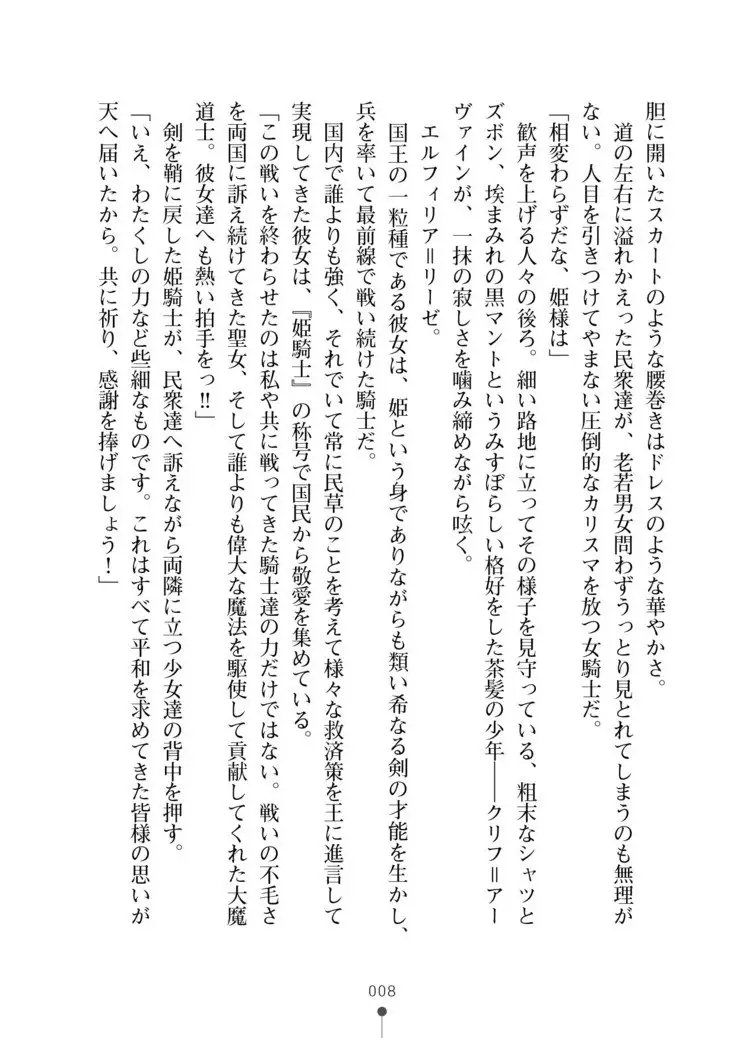 胆に開いたスカートのような腰巻きはドレスのような華やかさ。
道の左右に溢れかえった民衆達が、老若男女問わずうっとり見とれてしまうのも無理が
ない。人目を引きつけてやまない圧倒的なカリスマを放つ女騎士だ。
「相変わらずだな、姫様は」
歓声を上げる人々の後ろ。細い路地に立ってその様子を見守っている、粗末なシャツと
ズボン、埃まみれの黒マントというみすぼらしい格好をした茶髪の少年――クリフ＝アー
ヴァインが、一抹の寂しさを噛み締めながら呟く。
エルフィリア＝リーゼ。
国王の一粒種である彼女は、姫という身でありながらも類い希なる剣の才能を生かし、
兵を率いて最前線で戦い続けた騎士だ。
国内で誰よりも強く、それでいて常に民草のことを考えて様々な救済策を王に進言して
実現してきた彼女は、『姫騎士』の称号で国民から敬愛を集めている。
「この戦いを終わらせたのは私や共に戦ってきた騎士達の力だけではない。戦いの不毛さ
を両国に訴え続けてきた聖女、そして誰よりも偉大な魔法を駆使して貢献してくれた大魔
道士。彼女達へも熱い拍手をっ!!」
剣を鞘に戻した姫騎士が、民衆達へ訴えながら両隣に立つ少女達の背中を押す。
「いえ、わたくしの力など些細なものです。これはすべて平和を求めてきた皆様の思いが
天へ届いたから。共に祈り、感謝を捧げましょう！」
008